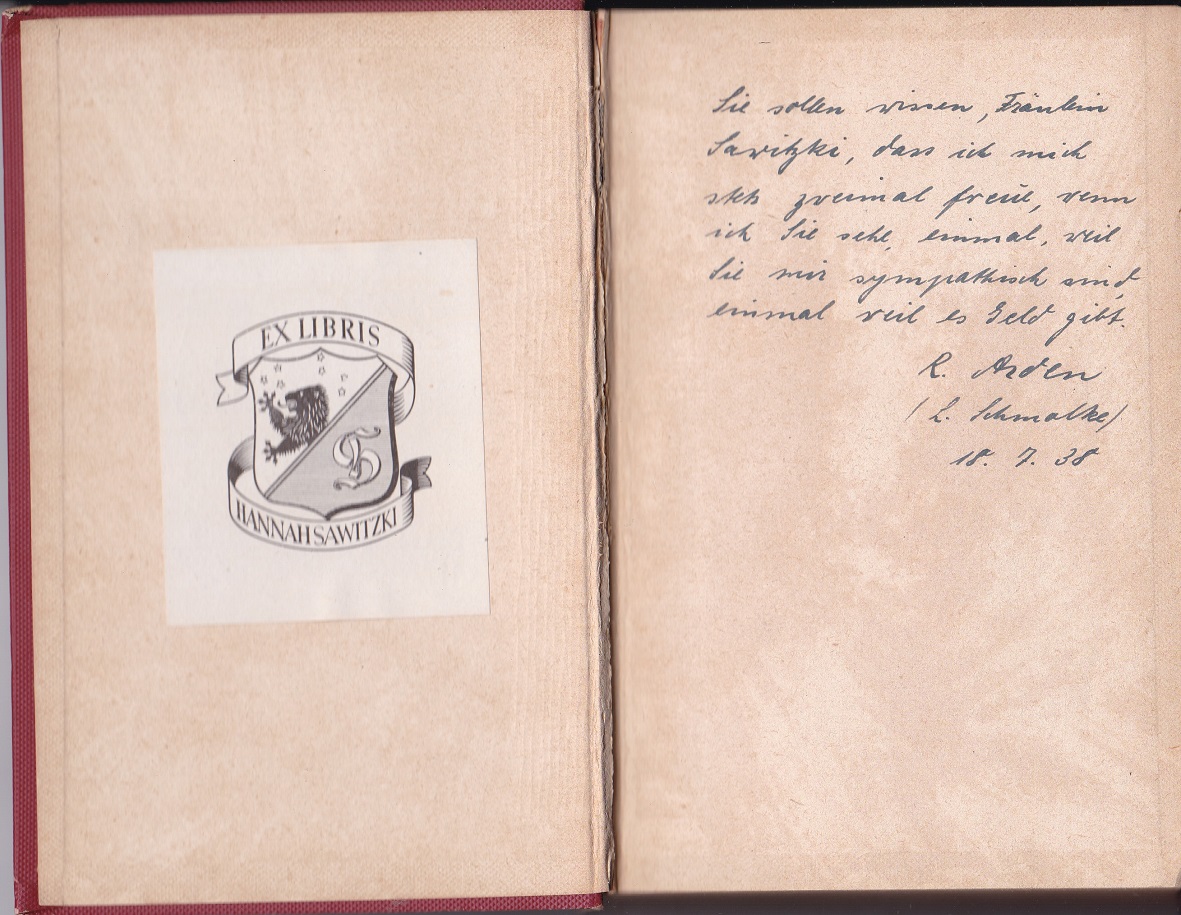 EX LIBRIS
HANNAH SAWITZKI
Sie sollen wissen, Fräulein
Sawitzki, dass ich mich
stets zweimal freue, wenn
ich Sie sehe, einmal, weil
Sie mir sympathisch sind,
einmal weil es Geld gibt.
R. Arden
(L. Schmalke)
18. 7. 38